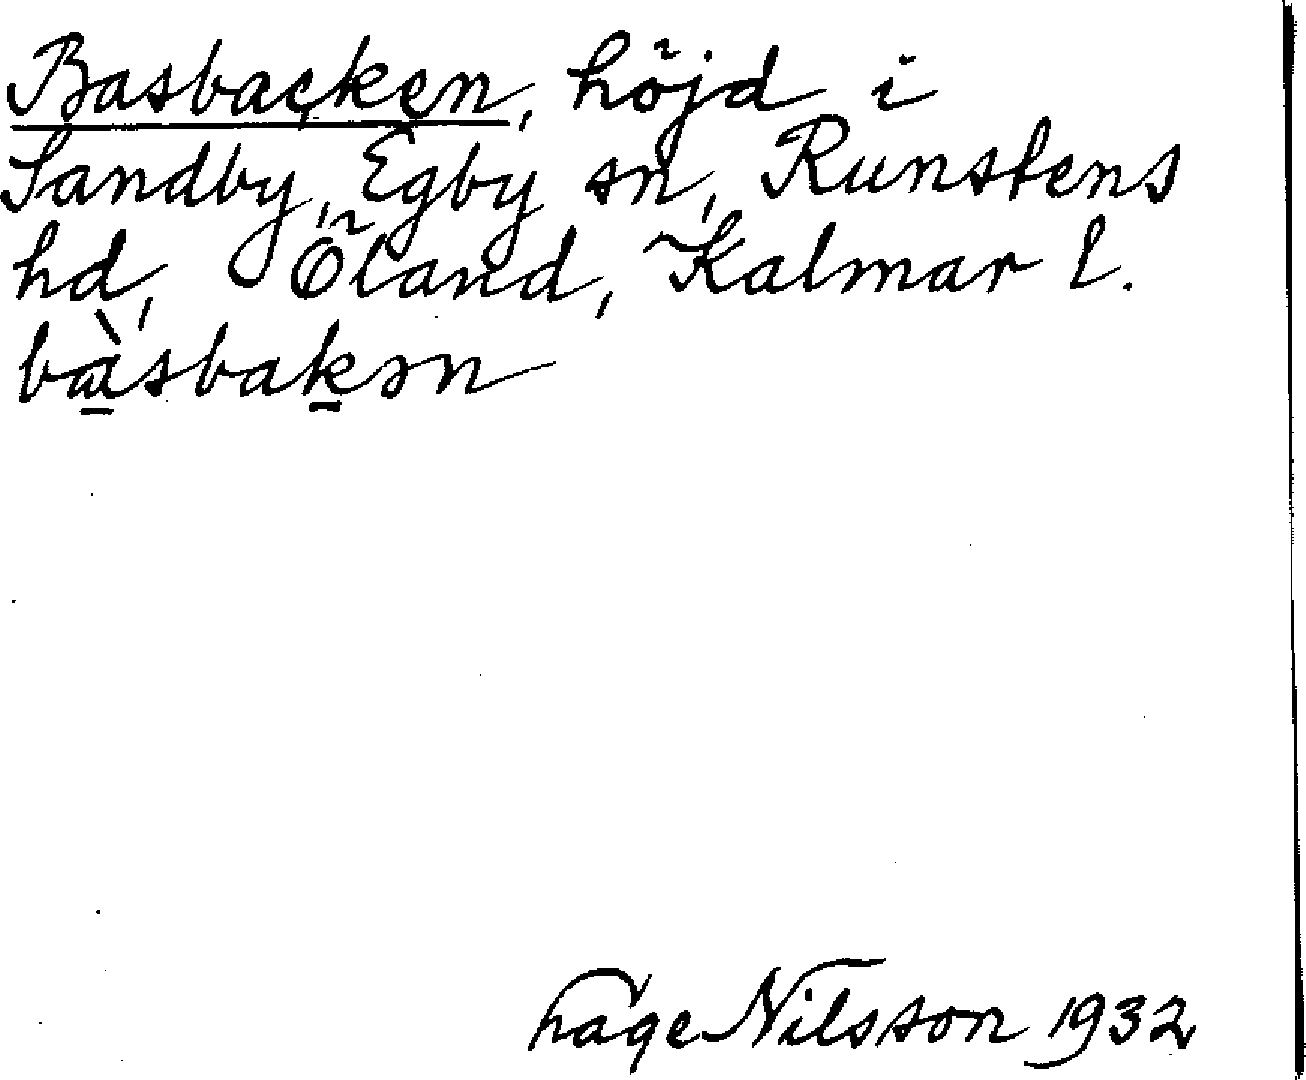 Basbacken, höjd i
Sandby, Egby sn, Runstens
hd, Öland, Kalmar l.
bàsbakən
Nilsson 1932